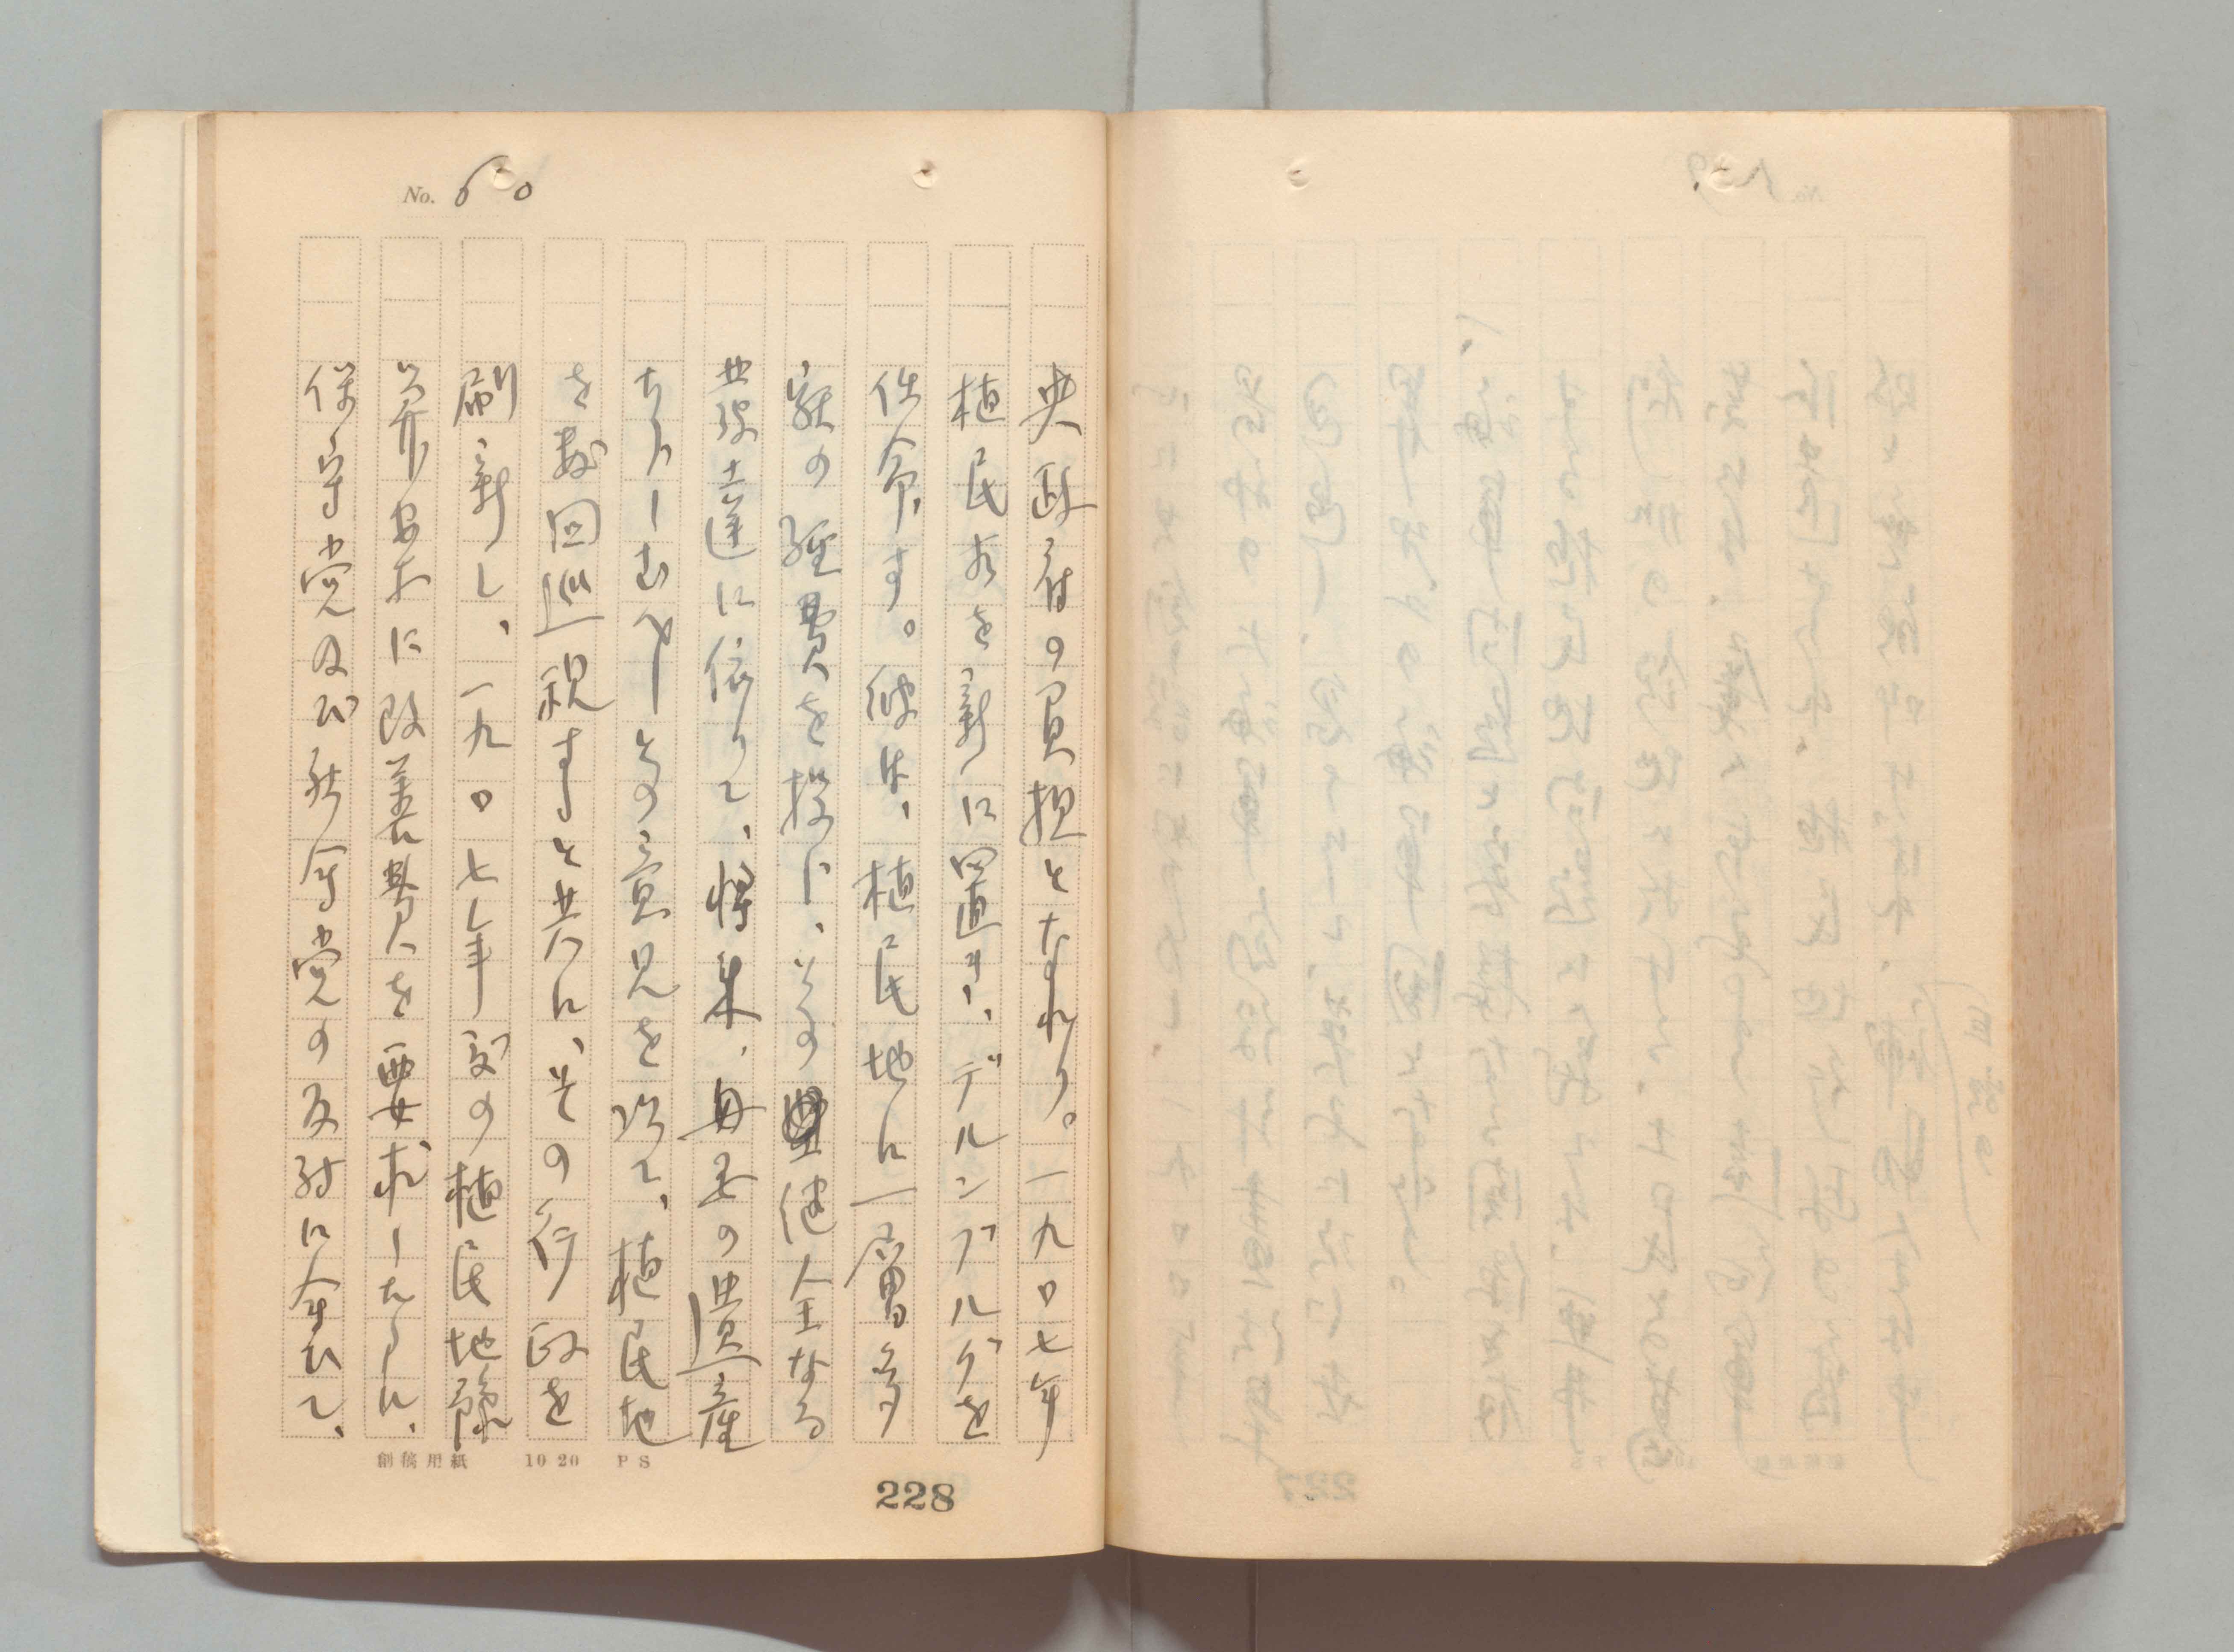 No. 630
央政府の負担となれり。一九〇七年
植民省を新に置き、デルンブルグを
任命す。彼は、植民地に一層多
額の経費を投じ、その健全なる
発達に依りて、将来、母国の遺産
たらしむべしとの意見を以て、植民地
を数回巡視すると共に、その行政を
刷新し、一九〇七年度の植民地予
算案に改善費を要求したるに、
保守党及び社会党の反対に会ひて、
創稿用紙 10 20 PS
228